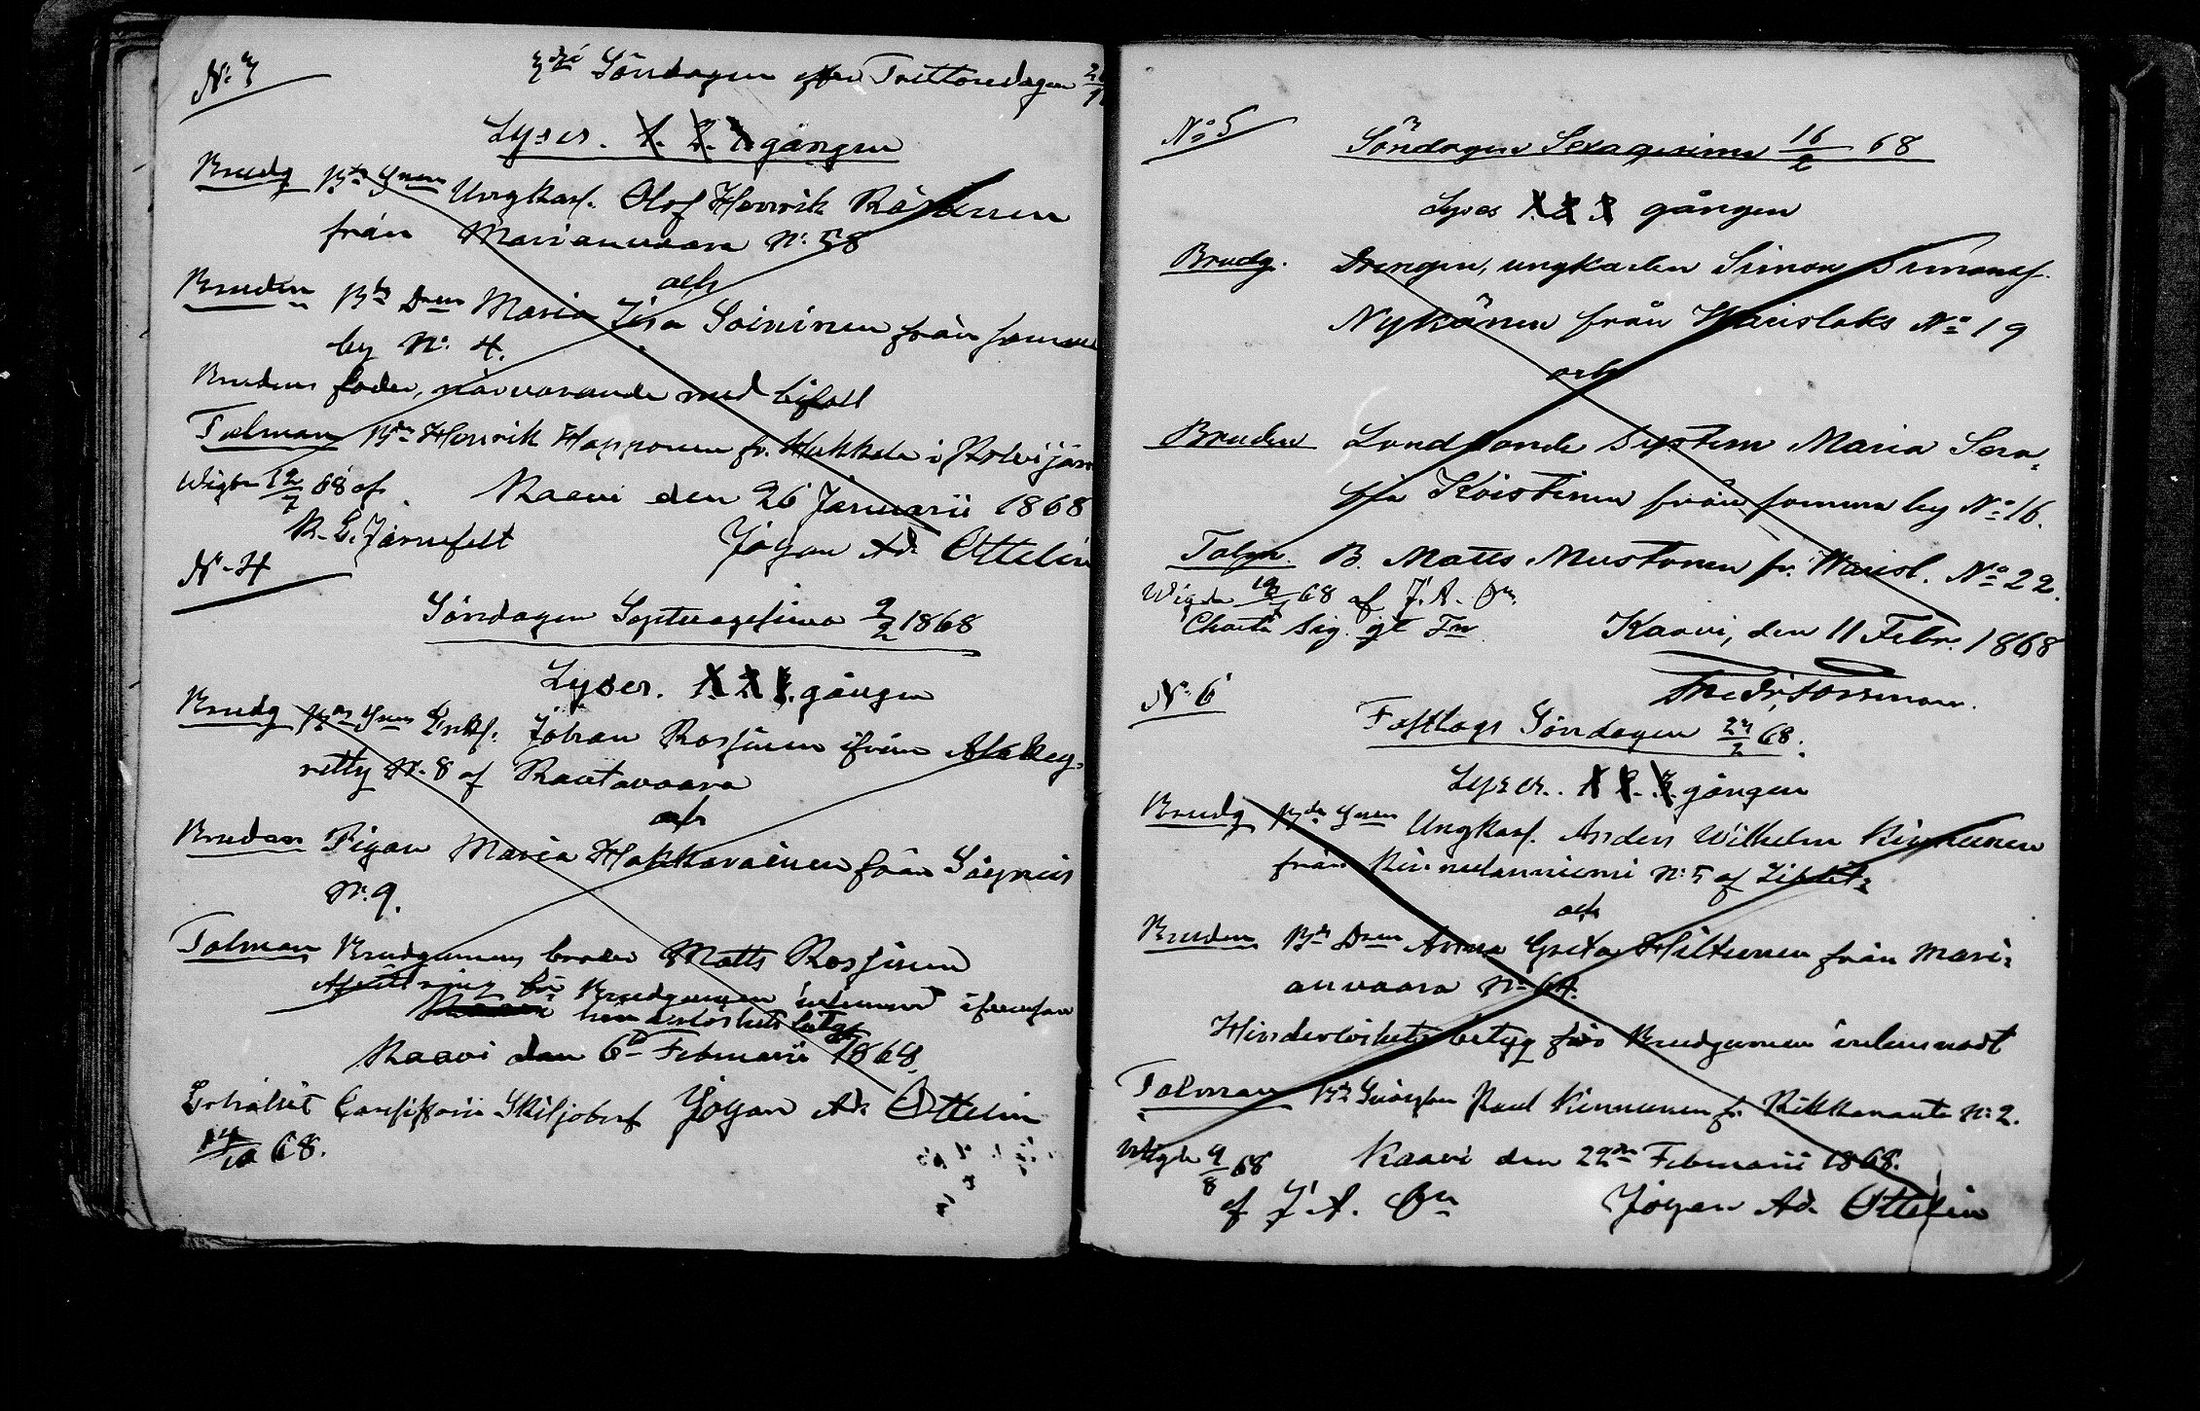 N:3
3dje Söndagen efter Trettondedagen 26/1
Lyses. 1. 2. 3. gången
Brudg Bde Snen Ungkarl. Olof Henrik Räsänen
från Marianvaara N: 58
och
Bruden Bde Dren Maria Lisa Soininen från samma
by N: 4.
Brudens fader, närvarande med bifall
Talman Bdn Henrik Happonen fr. Hukkala i Polvijärvi
Wigde 12/7 68 af
K. E. Järnefelt
Kaavi den 26 Januarii 1868
Johan Ad. Ottelin
N:4
Söndagen Septuagesima 9/2 1868
Lyses. 1. 2. 3. gången
Brudg Bde Snen Enkl. Johan Rossinen ifrån Alakey-
ritty N: 8 af Rautavaara
och
Bruden Pigan Maria Hakkarainen från Säyneis
N: 9.
Talman Brudgumens broder Matts Rossinen
för Brudgumen
hinderlöshets betyg
Kaavi den 6te Februarii 1868.
Johan Ad. Ottelin
Erhållit Consistorii Skiljobref
14/10 68.
No 5
Söndagen Sexagesima 16/2 68
Lyses 1. 2. 3 gången
Brudg. Drengen, ungkarlen Simon Simonsf.
Nykänen från Warislaks No 19
och
Bruden Landbonde dystern Maria Sera-
fia Koistinen från samma by No 16.
Talm. B. Matts Mustonen fr. Warisl. No 22.
Wigde 68 af J. A. On.
Charta Sig. gl Fn
Kaavi, den 11 Febr. 1868
Fredr. Forsman.
N: 6
Fastlags Söndagen 23/2 68.
Lyses. 1 2. 3. gången
Brudg Bde Snen Ungkarl. Anders Wilhelm Kinnunen
från Kinnulanniemi N: 5 af Libelits
och
Bruden Bde Dren Anna Greta Hiltunen från Mari-
anvaara N: 64.
Hinderlöshets betyg för Brudgumen inlemnadt
Talman Bdn Svågren Paul Kinnunen fr. Rikkaranta N: 2.
Wigde 9/8 68
af J. A. On
Kaavi den 22dra Februarii 1868.
Johan Ad. Ottelin